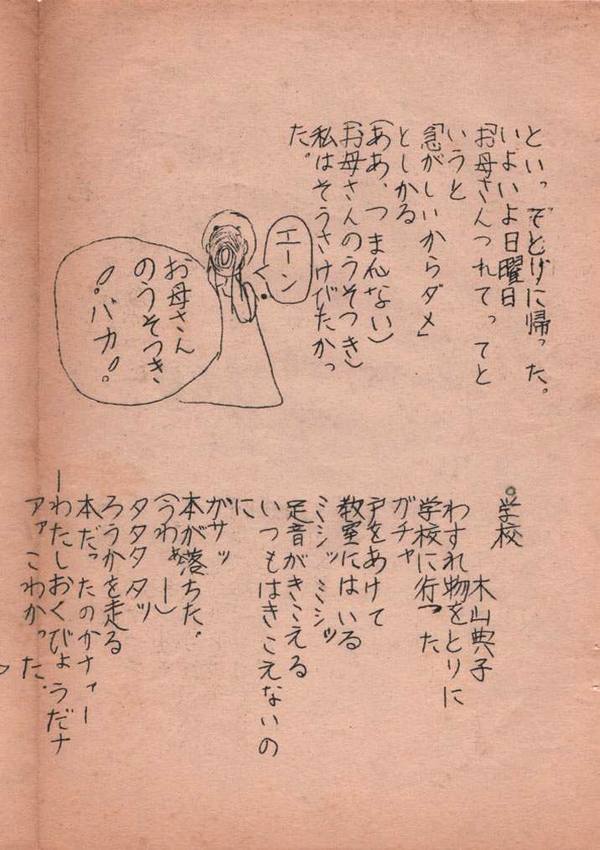 といってとけに帰った。
いよいよ日曜日
「お母さんつれてってと
いうと
「急がしいからダメ」
としかる
(ああ、つまんない)
(お母さんのうそつき)
私はそうさけびたかっ
た。
エーン
お母さん
のうそつき、
!バカ!
学校
木山典子
わすれ物をとりに
学校に行った
ガチャ
戸をあけて
教室にはいる
ミシッ ミシッ
足音がきこえる
いつもはきこえないの
に
ガサッ
本が落ちた。
(うわぁー)
タタタタッ
ろうかを走る
本だったのかナァー
ーわたしおくびょうだナ
アァこわかった。